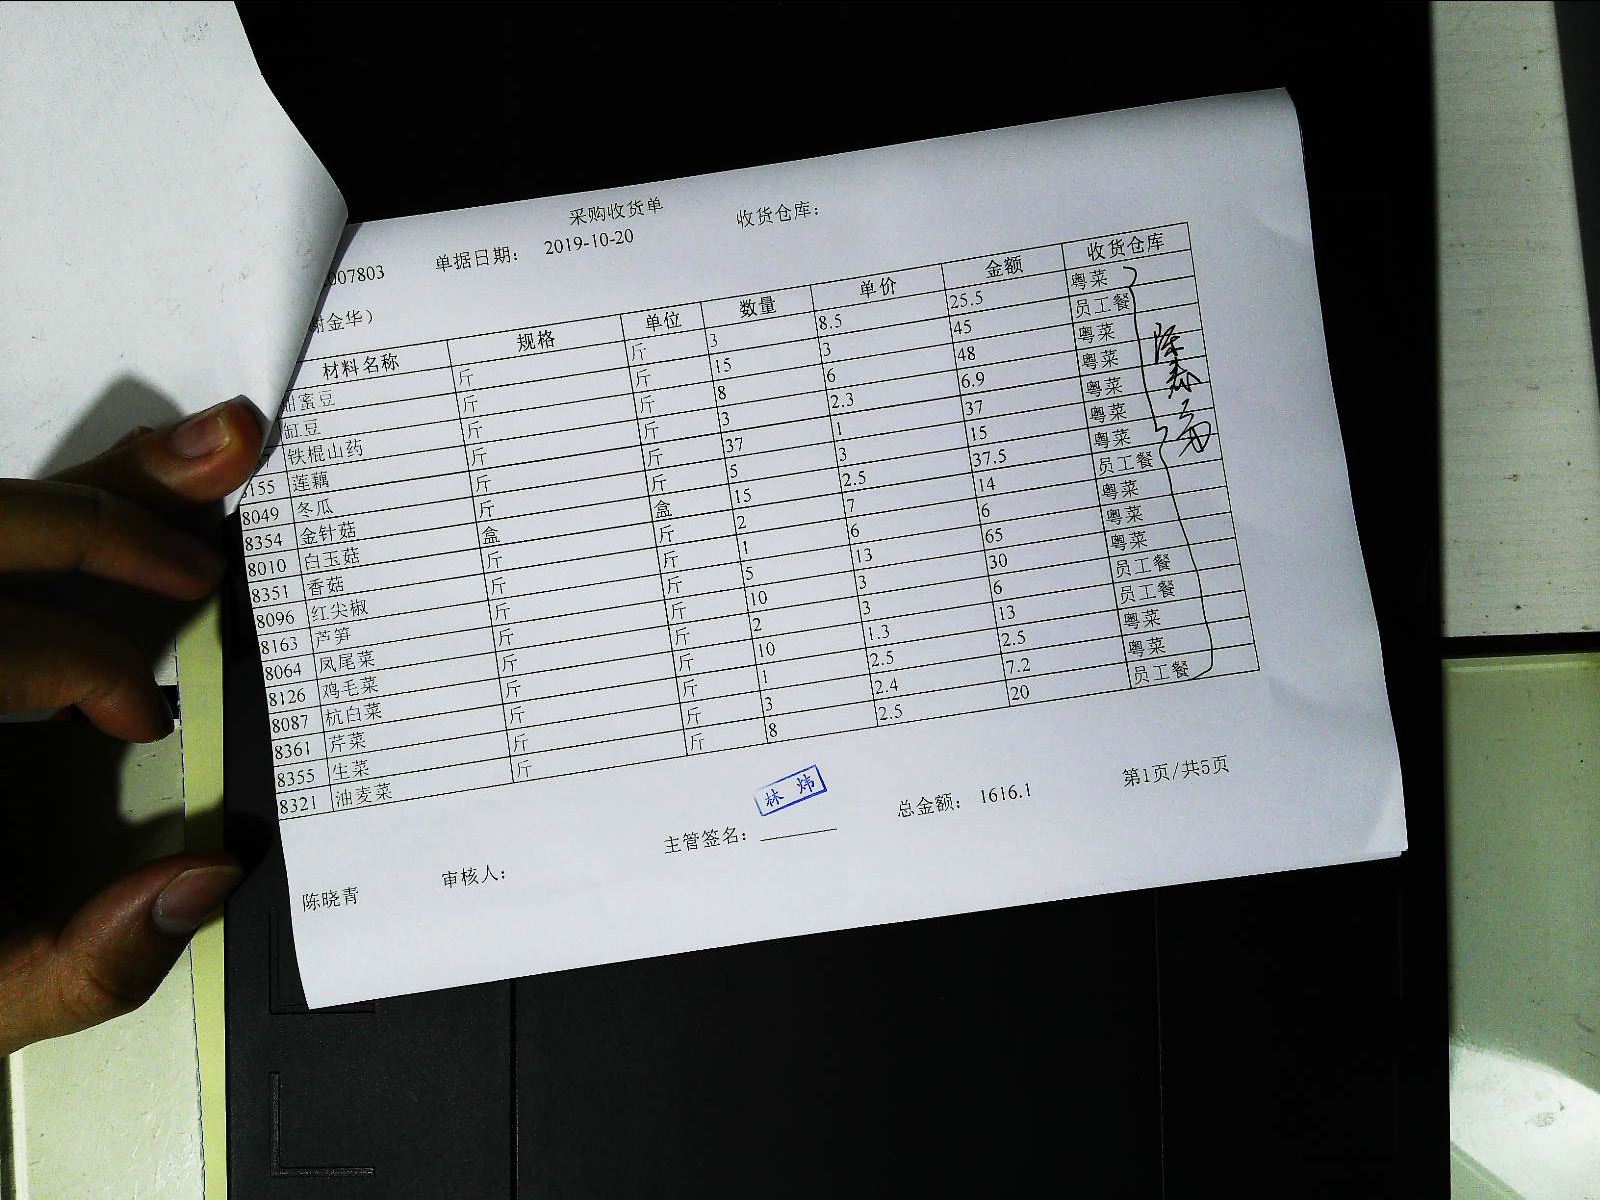 采购收货单
007803 单据日期： 2019-10-20 收货仓库：
谢金华）
材料名称 规格 单位 数量 单价 金额 收货仓库
甜蜜豆 斤 斤 3 8.5 25.5 粤菜
缸豆 斤 斤 15 3 45 员工餐
铁棍山药 斤 斤 8 6 48 粤菜
8155 莲藕 斤 斤 3 2.3 6.9 粤菜
8049 冬瓜 斤 斤 37 1 37 粤菜
8354 金针菇 斤 斤 5 3 15 粤菜
8010 白玉菇 盒 盒 15 2.5 37.5 粤菜
8351 香菇 斤 斤 2 7 14 员工餐
8096 红尖椒 斤 斤 1 6 6 粤菜
8163 芦笋 斤 斤 5 13 65 粤菜
8064 凤尾菜 斤 斤 10 3 30 粤菜
8126 鸡毛菜 斤 斤 2 3 6 员工餐
8087 杭白菜 斤 斤 10 1.3 13 员工餐
8361 芹菜 斤 斤 1 2.5 2.5 粤菜
8355 生菜 斤 斤 3 2.4 7.2 粤菜
8321 油麦菜 斤 斤 8 2.5 20 员工餐
林炜
陈晓青 审核人： 主管签名： 总金额： 1616.1 第1页/共5页